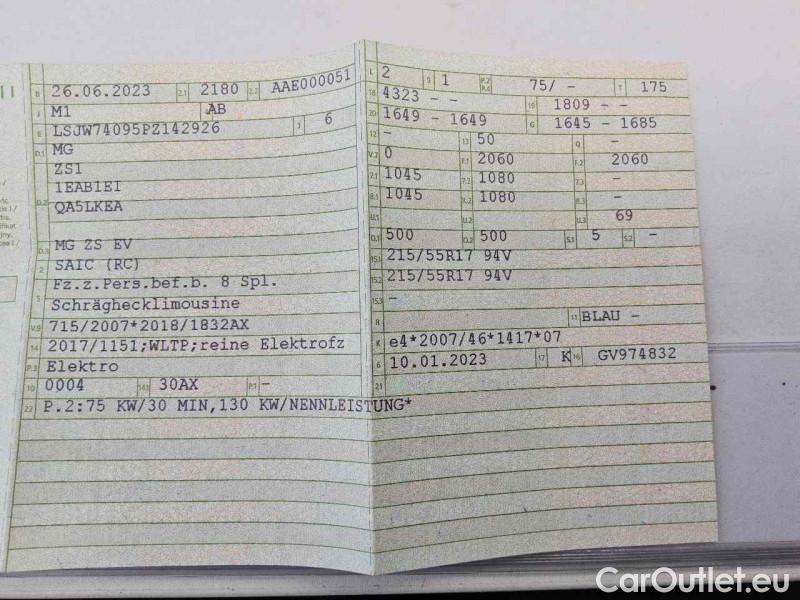 B 26.06.2023 2.1 2180 2.2 AAE000051
J M1 4 AB
E LSJW74095PZ142926 3 6
D.1 MG
ZS1
1EAB1EI
D.2 QA5LKEA
D.3 MG ZS EV
2 SAIC (RC)
Fz.z.Pers.bef.b. 8 Spl.
5 Schräghecklimousine
V.9 715/2007*2018/1832AX
14 2017/1151;WLTP;reine Elektrofz
P.3 Elektro
10 0004 14.1 30AX P.1 -
22 P.2:75 KW/30 MIN,130 KW/NENNLEISTUNG*
L 2 9 1 P.2 P.4 75/ - T 175
18 4323 - - 19 1809 - -
20 1649 - 1649 G 1645 - 1685
12 - 13 50 Q -
V.7 0 F.1 2060 F.2 2060
7.1 1045 7.2 1080 7.3 -
8.1 1045 8.2 1080 8.3 -
U.1 U.2 U.3 69
O.1 500 O.2 500 S.1 5 S.2 -
15.1 215/55R17 94V
15.2 215/55R17 94V
15.3 -
R 11 BLAU -
K e4*2007/46*1417*07
6 10.01.2023 17 K 16 GV974832
21
CarOutlet.eu